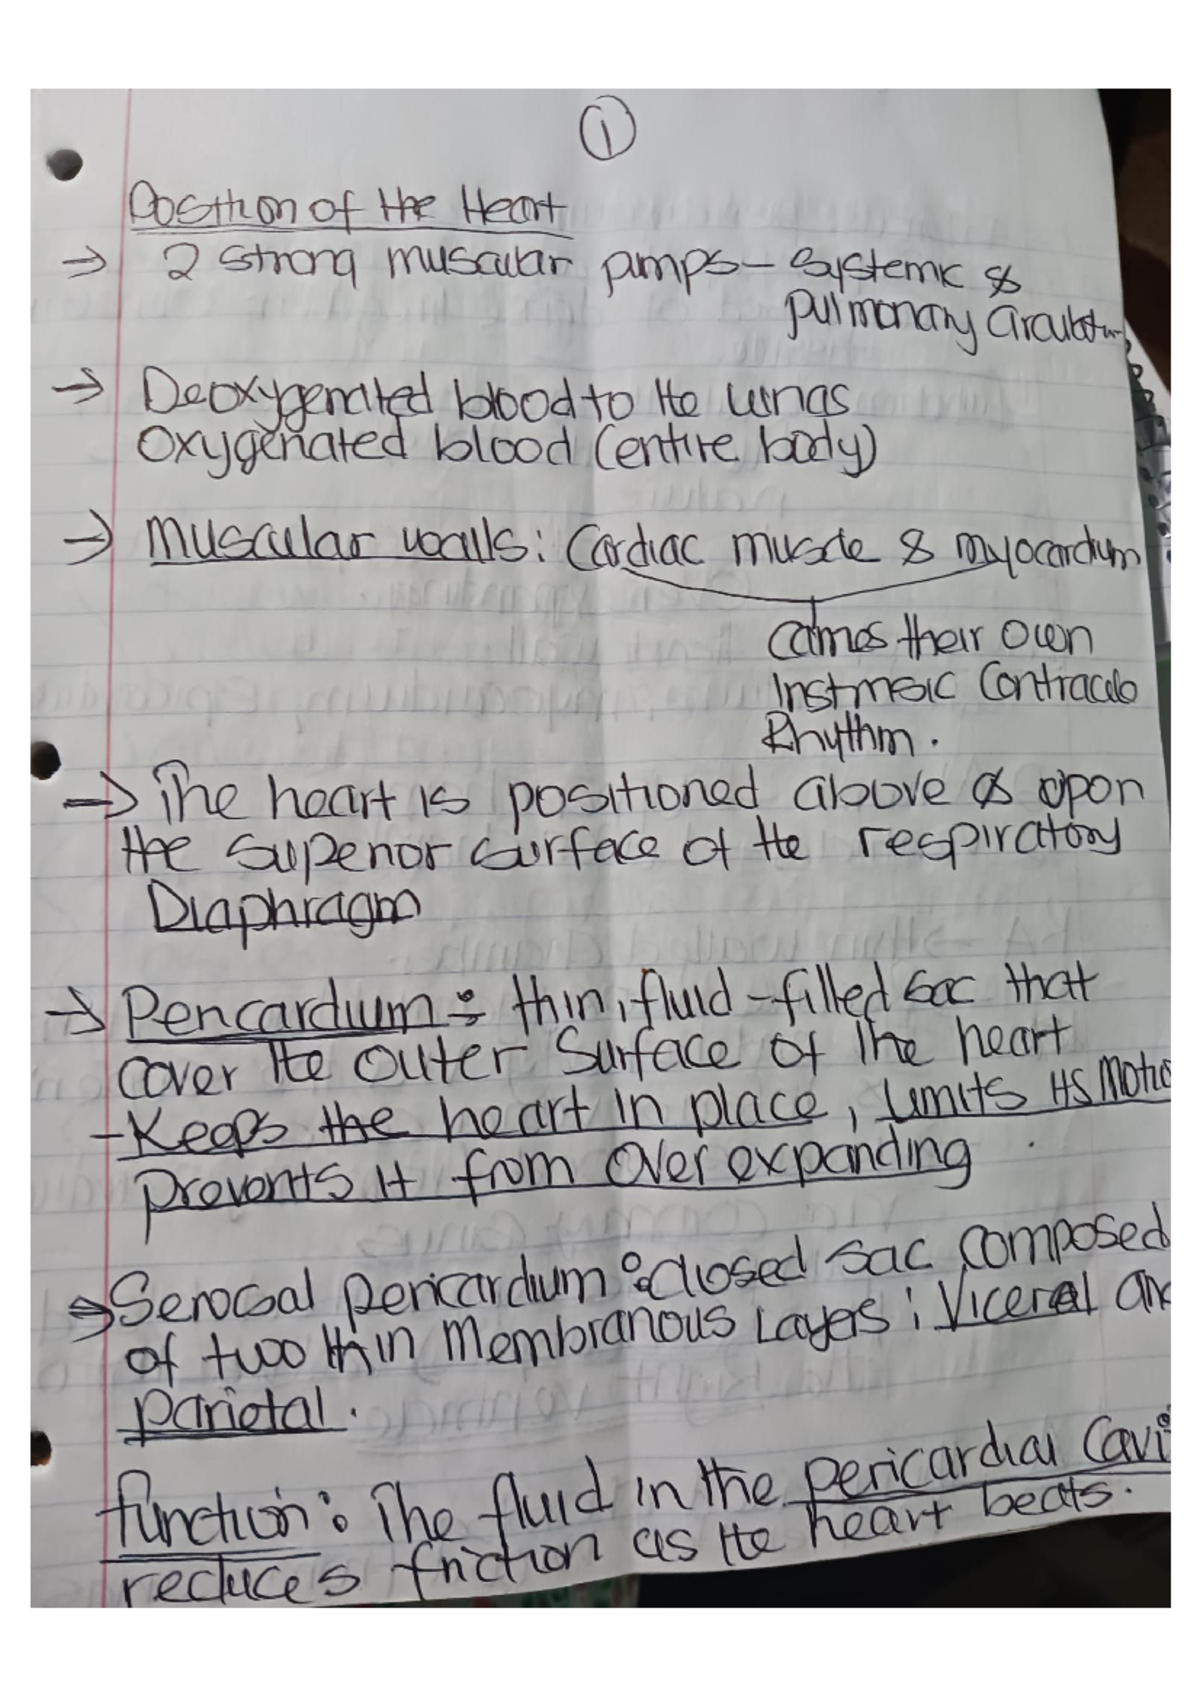 1
Position of the Heart
→ 2 strong muscular pumps - Systemic &
pulmonary circulation
→ Deoxygenated blood to the lungs
Oxygenated blood (entire body)
→ Muscular walls: Cardiac muscle & myocardium
carries their own
Instrinsic Contractile
Rhythm.
→ The heart is positioned above & upon
the superior surface of the respiratory
Diaphragm
→ Pericardium: thin, fluid-filled sac that
cover the outer surface of the heart
- Keeps the heart in place, Limits its Motio
prevents it from over expanding
→ Serosal pericardium: closed sac composed
of two thin Membranous Layers; Viceral an
parietal.
function: The fluid in the pericardial Cavi
reduces friction as the heart beats.